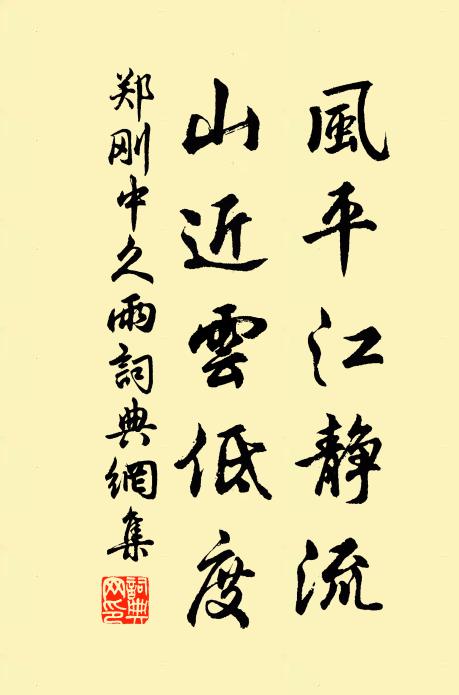 風平江静流
山近雲低度
郑刚中久雨詞典網集
詞典網印